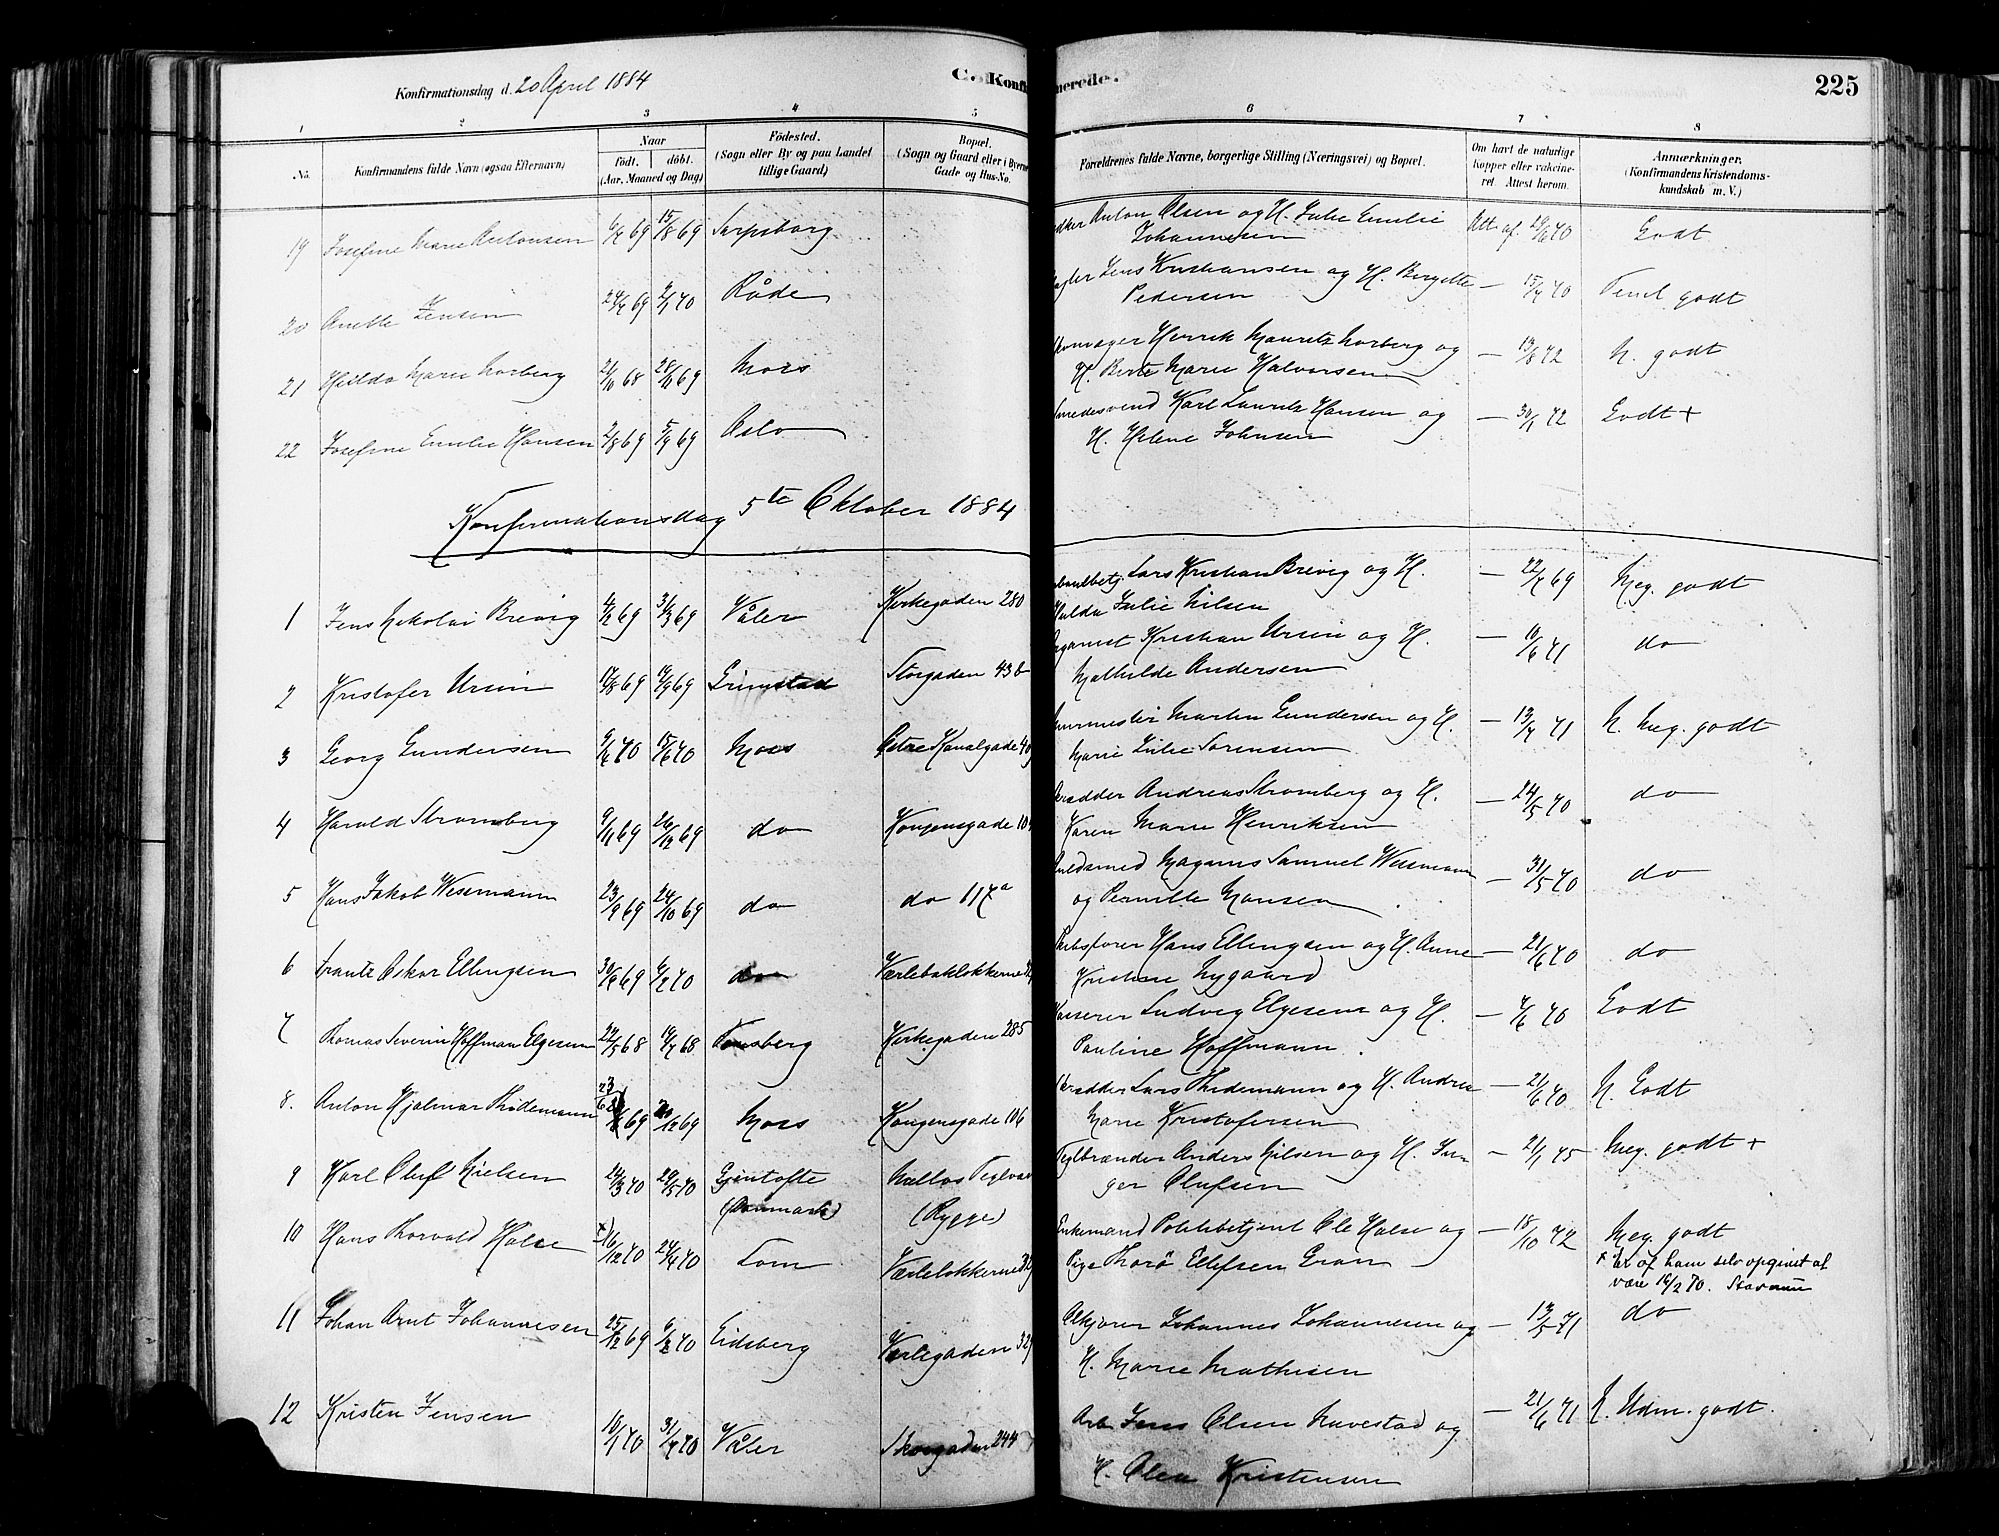 Konfirmationsdag d. 20 April 1884
C. Konfi
merede.
225
1 2 3 4 5 6 7 8
No. Konfirmandens fulde Navn (ogsaa Efternavn) Naar födt. döbt. (Aar, Maaned og Dag) Födested. (Sogn eller By og paa Landet tillige Gaard) Bopæl. (Sogn og Gaard eller i Byerne Gade og Hus-No. Forældrenes fulde Navne, borgerlige Stilling (Næringsvei) og Bopæl. Om havt de naturlige Kopper eller vakcineret. Attest herom. Anmerkninger. (Konfirmandens Kristendomskundskab m. V.)
19 Josefine Marie Antonsen 69 15/8 69 Sarpsborg Anton Olsen og H. Julie Emilie Johannesen Att. af. 70 Godt
20 Anette Jensen 69 70 Råde Jens Kristiansen og H. Bergette Pedersen — 70 Temel godt
21 Hilda Marie Norberg 68 69 Moss Henrik Mauritz Norberg og H. Berte Marie Halvorsen — 72 N. godt
22 Josefine Emilie Hansen 2/8 69 5/9 69 Oslo medesvend Karl Lauritz Hansen og H. Helene Johnsen — 30/1 72 Godt +
Konfirmationsdag 5te Oktober 1884
1 Jens Nikolai Brevig 4/2 69 31/3 69 Våler Kirkegaden 280 Lars Kristian Brevig og H. Hulda Julie Nilsen — 69 Meg. godt
2 Kristofer Ursin 17/8 69 19/9 69 Grimstad Storgaden 43 b rganist Kristian Ursin og H. Mathilde Andersen — 71 do
3 Georg Gundersen 70 15/6 70 Moss Østre Kanalgade 40 urmester Martin Gundersen og H. Marie Julie Sørensen — 71 N. Meg. godt
4 Harald Stromberg 9/11 69 26/12 69 do Kongensgade 10 rædder Andreas Stromberg og H. Karen Marie Henriksen — 24/5 70 do
5 Hans Jakob Wessmann 23/9 69 24/10 69 do do 117a uldsmed Magnus Samuel Wessmann og Pernille Hansen — 31/5 70 do
6 Frantz Oskar Ellingsen 69 70 do Hans Ellingsen og H. Anne Kristine Nygaard — 21/6 70 do
7 Thomas Severin Hoffman Elgesen 22/5 68 68 Tønsberg Kirkegaden 285 Ludvig Elgesen og H. Pauline Hoffmann — 70 Godt
8. Anton Hjalmar Thidemann 69 12 69 Moss Kongensgade 106 rædder Lars Thidemann og H. Andrea Marie Kristofersen — 21/6 70 N. Godt
9 Karl Oluf Nielsen 24/3 70 29/5 70 Gjentofte (Danmark) Teglv (Rygge) Teglbrænder Anders Nilsen og H. Inger Olufsen — 21/1 75 Meg. godt +
10 Hans Thorvald Halse x) 16/12 70 24/4 70 Lom Værlelokkerne 32 Enkemand Politibetjent Ole Halse og Pige Thorø Ellefsen Gran — 18/10 72 Meg. godt
x er af ham selv opgivet at være 16/2 70.
11 Johan Arnt Johannesen 25/12 69 6/2 70 Eidsberg Værlegaden 32 Johannes Johannesen og H. Marie Mathisen — 71 do
12 Kristen Jensen 70 31/7 70 Våler Skovgaden 244 Arb. Jens Olsen Navestad og H. Olea Kristensen — 21/6 71 N. Udm. godt.